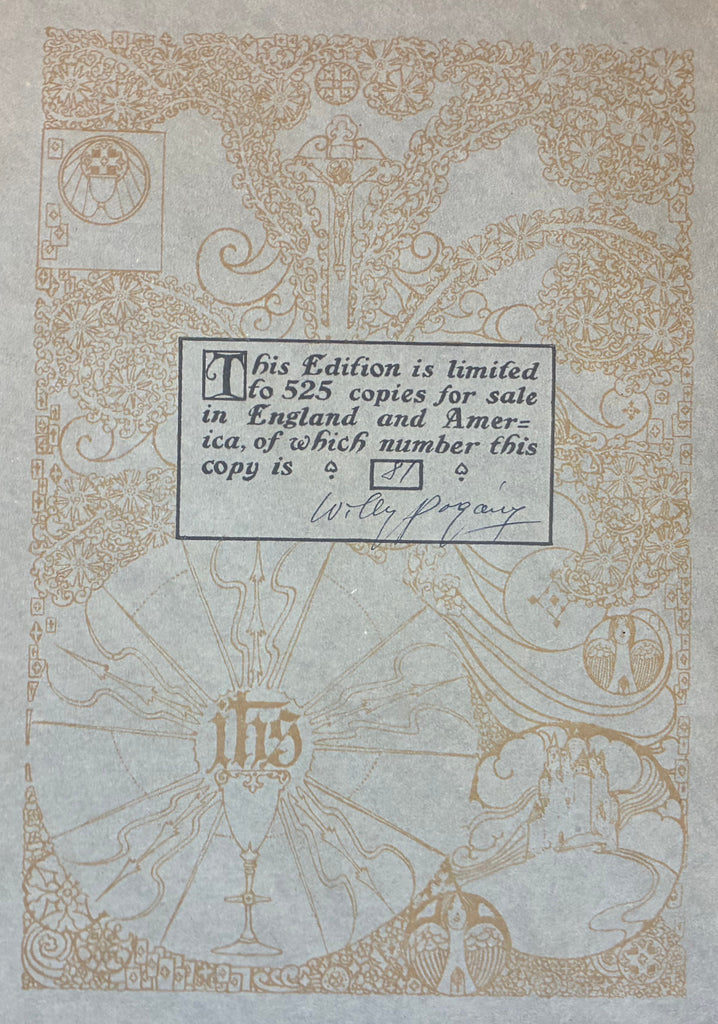 This Edition is limited
to 525 copies for sale
in England and Amer=
ica, of which number this
copy is 81
Willy Pogány
ihs